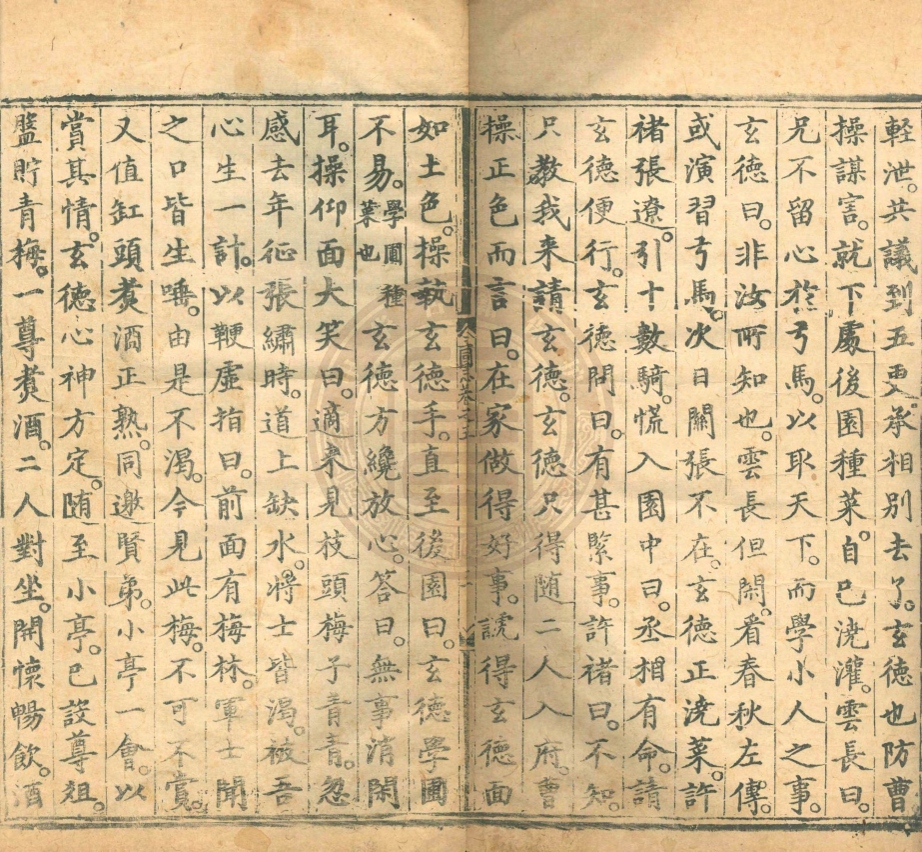 軽泄。共議到五更。承相別去了。玄德也防曹
操謀害。就下處後園種菜。自己澆灌。雲長曰。
兄不留心於弓馬。以取天下。而學小人之事。
玄德曰。非汝所知也。雲長但閑。看春秋左傳。
或演習弓馬。次日關張不在。玄德正澆菜。許
褚張遼。引十數騎。慌入園中曰。丞相有命。請
玄德便行。玄德問曰。有甚緊事。許褚曰。不知。
只教我来請玄德。玄德只得随二人入府。曹
操正色而言曰。在家做得好事。諕得玄德面
如土色。操執玄德手。直至後園曰。玄德學圃
不易。學圃種菜也玄德方纔放心。答曰。無事消閑
耳。操仰面大笑曰。適来見枝頭梅子青青。忽
感去年征張繡時。道上缺水。將士皆渴。被吾
心生一計。以鞭虛指曰。前面有梅林。軍士聞
之口皆生唾。由是不渴。今見此梅。不可不賞。
又值缸頭煮酒正熟。同邀賢弟。小亭一會。以
賞其情。玄德心神方定。随至小亭。已設尊俎。
盤貯青梅。一尊煮酒。二人對坐。開懷暢飲。酒